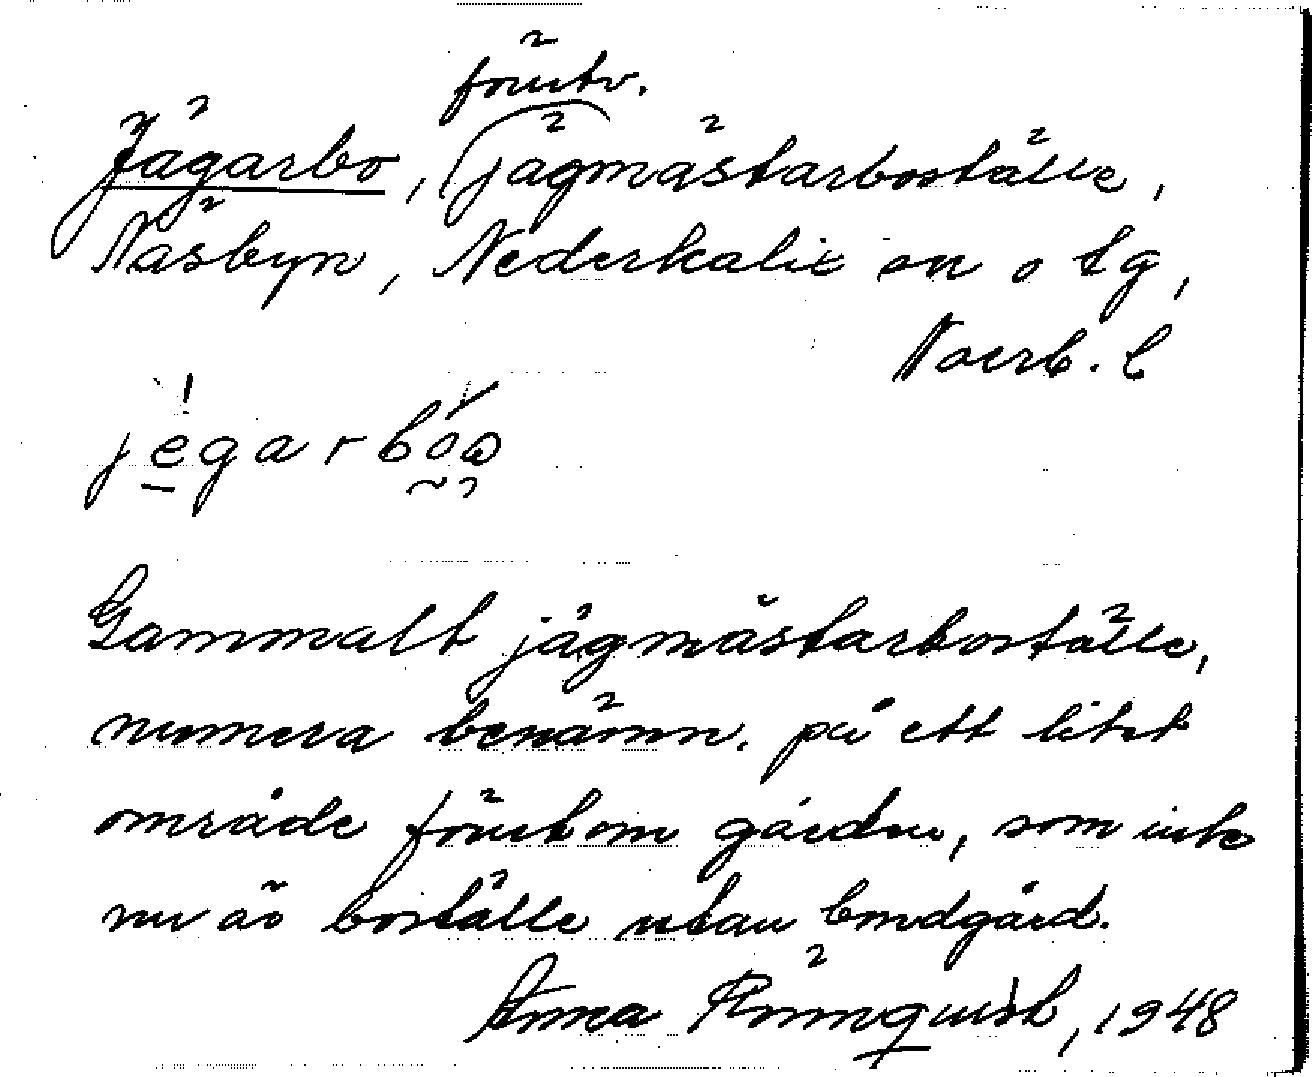 förutv.
Jägarbo, (jägmästarboställe,
Näsbyn, Nederkalix sn o tg,
Norrb. l
jegarbóo
Gammalt jägmästarboställe,
numera benämn. på ett litet
område förutom gården, som inte
nu är boställe utan bondgård.
Anna Rönnquist, 1948